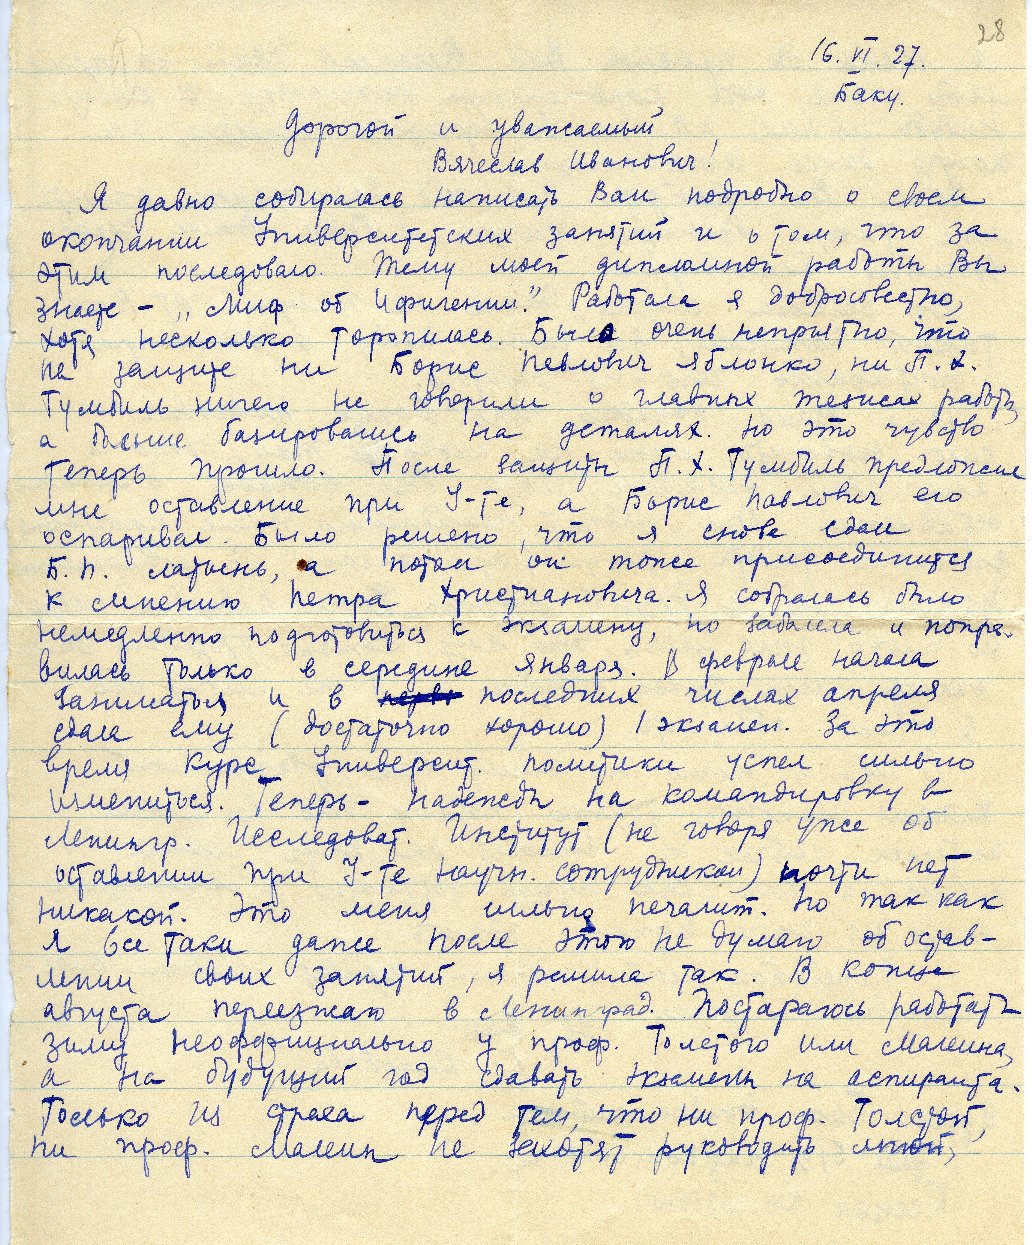 28
16. VI. 27.
Баку.
Дорогой и уважаемый
Вячеслав Иванович!
Я давно собиралась написать Вам подробно о своем
окончании Университетских занятий и о том, что за
этим последовало. Тему моей дипломной работы Вы
знаете – „Миф об Ифигении". Работала я добросовестно,
хотя несколько торопилась. Было очень неприятно, что
на защите ни Борис Павлович Яблонко, ни П. Х.
Тумбиль ничего не говорили о главных тезисах работы,
а больше базировались на деталях. Но это чувство
теперь прошло. После защиты П. Х. Тумбиль предложил
мне оставление при У-те, а Борис Павлович его
оспаривал. Было решено, что я снова сдам
Б. П. латынь, а потом он тоже присоединится
к мнению Петра Христиановича. Я собралась было
немедленно подготовиться к экзамену, но заболела и попра-
вилась только в середине января. В феврале начала
заниматься и в последних числах апреля
сдала ему (достаточно хорошо) 1 экзамен. За это
время курс Университ. политики успел сильно
измениться. Теперь – надежды на командировку в
Ленингр. Исследоват. Институт (не говоря уже об
оставлении при У-те научн. сотрудником) почти нет
никакой. Это меня сильно печалит. Но так как
я все таки даже после этого не думаю об остав-
лении своих занятий, я решила так. В конце
августа переезжаю в Ленинград. Постараюсь работать
зиму неоффициально у проф. Толстого или Малеина,
а на будущий год сдавать экзамены на аспиранта.
Только из страха перед тем, что ни проф. Толстой,
ни проф. Малеин не захотят руководить мной,